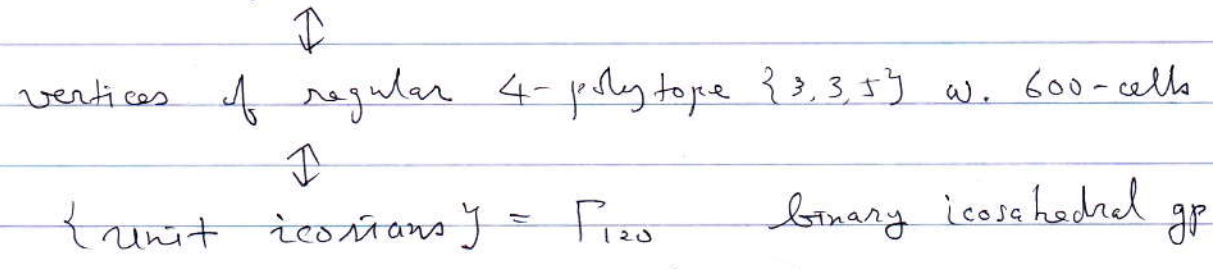 ↕
vertices of regular 4-polytope {3,3,5} w. 600-cells
↕
{unit icosians} = Γ₁₂₀ binary icosahedral gp